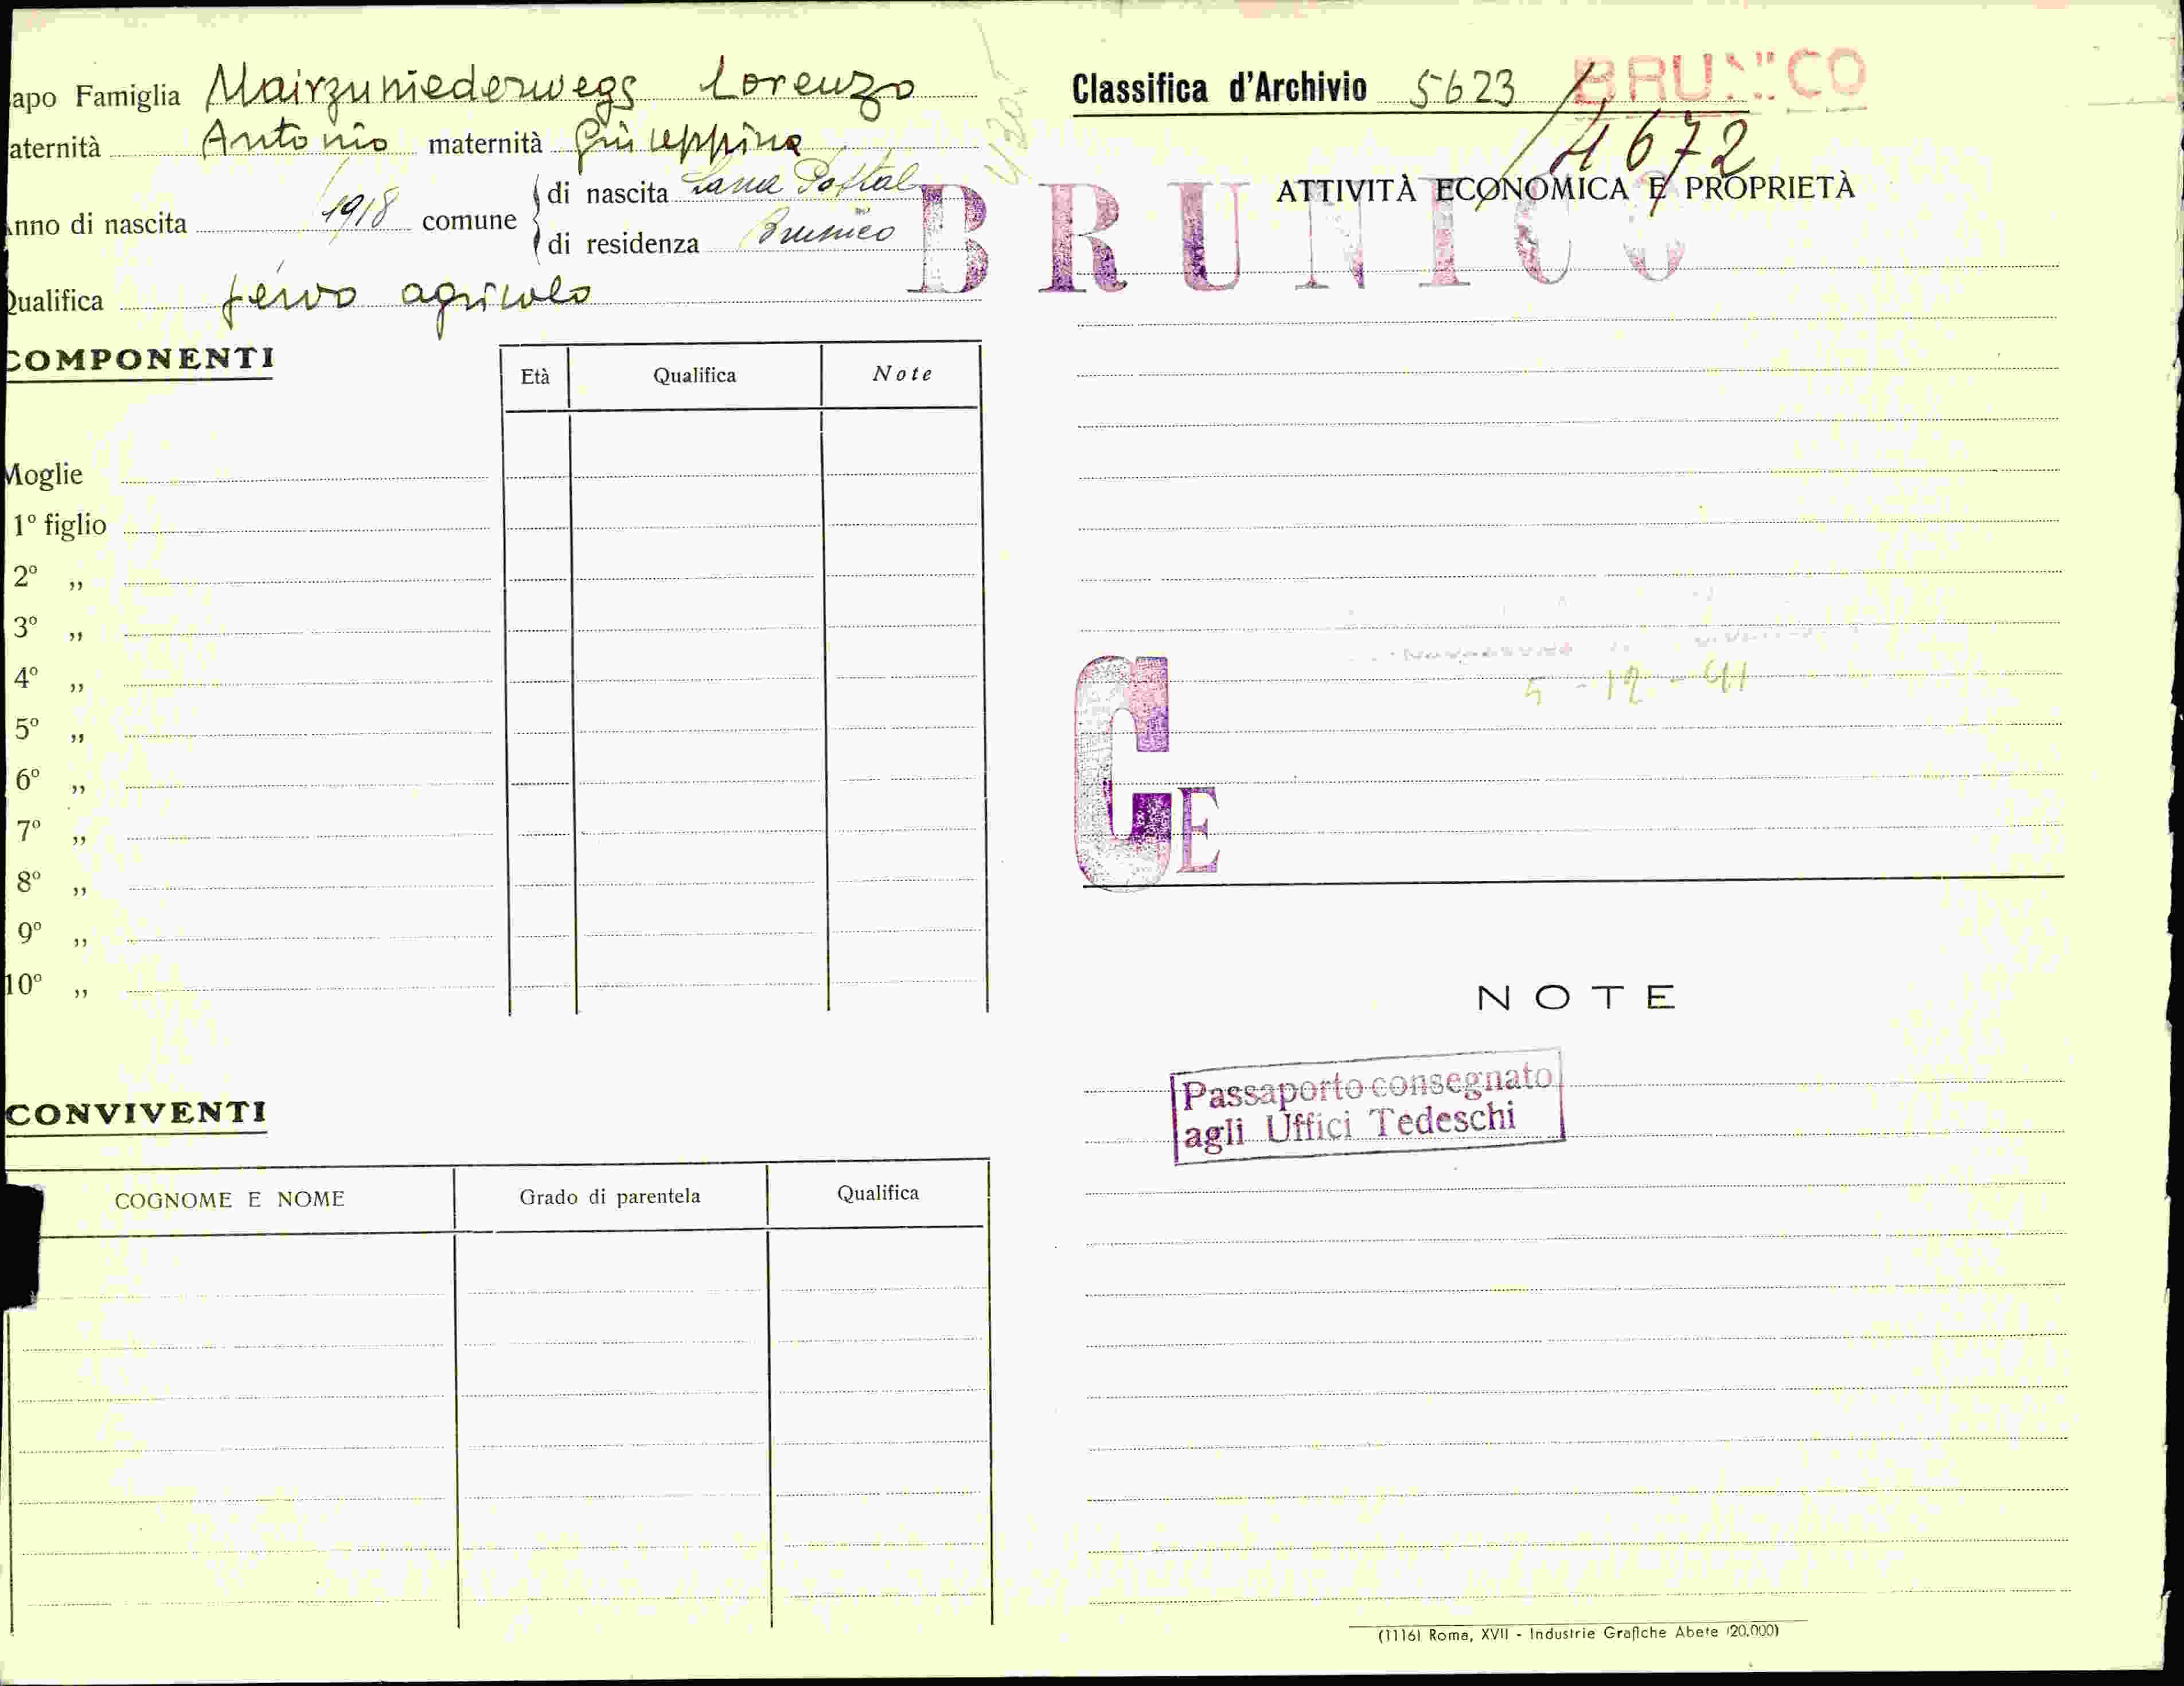 apo Famiglia Mairzuniederwegs Lorenzo
aternità Antonio maternità Giuseppina
nno di nascita 1918 comune di nascita Lana Postal
di residenza Brunico
Qualifica servo agricolo
COMPONENTI
Età Qualifica Note
Moglie
1º figlio
2º „
3º „
4º „
5º „
6º „
7º „
8º „
9º „
10º „
CONVIVENTI
COGNOME E NOME Grado di parentela Qualifica
Classifica d'Archivio 5623 / 4672
BRUNICO
ATTIVITÀ ECONOMICA E PROPRIETÀ
BRUNICO
5 - 12 - 41
CE
NOTE
Passaporto consegnato
agli Uffici Tedeschi
(1116) Roma, XVII - Industrie Grafiche Abete (20.000)